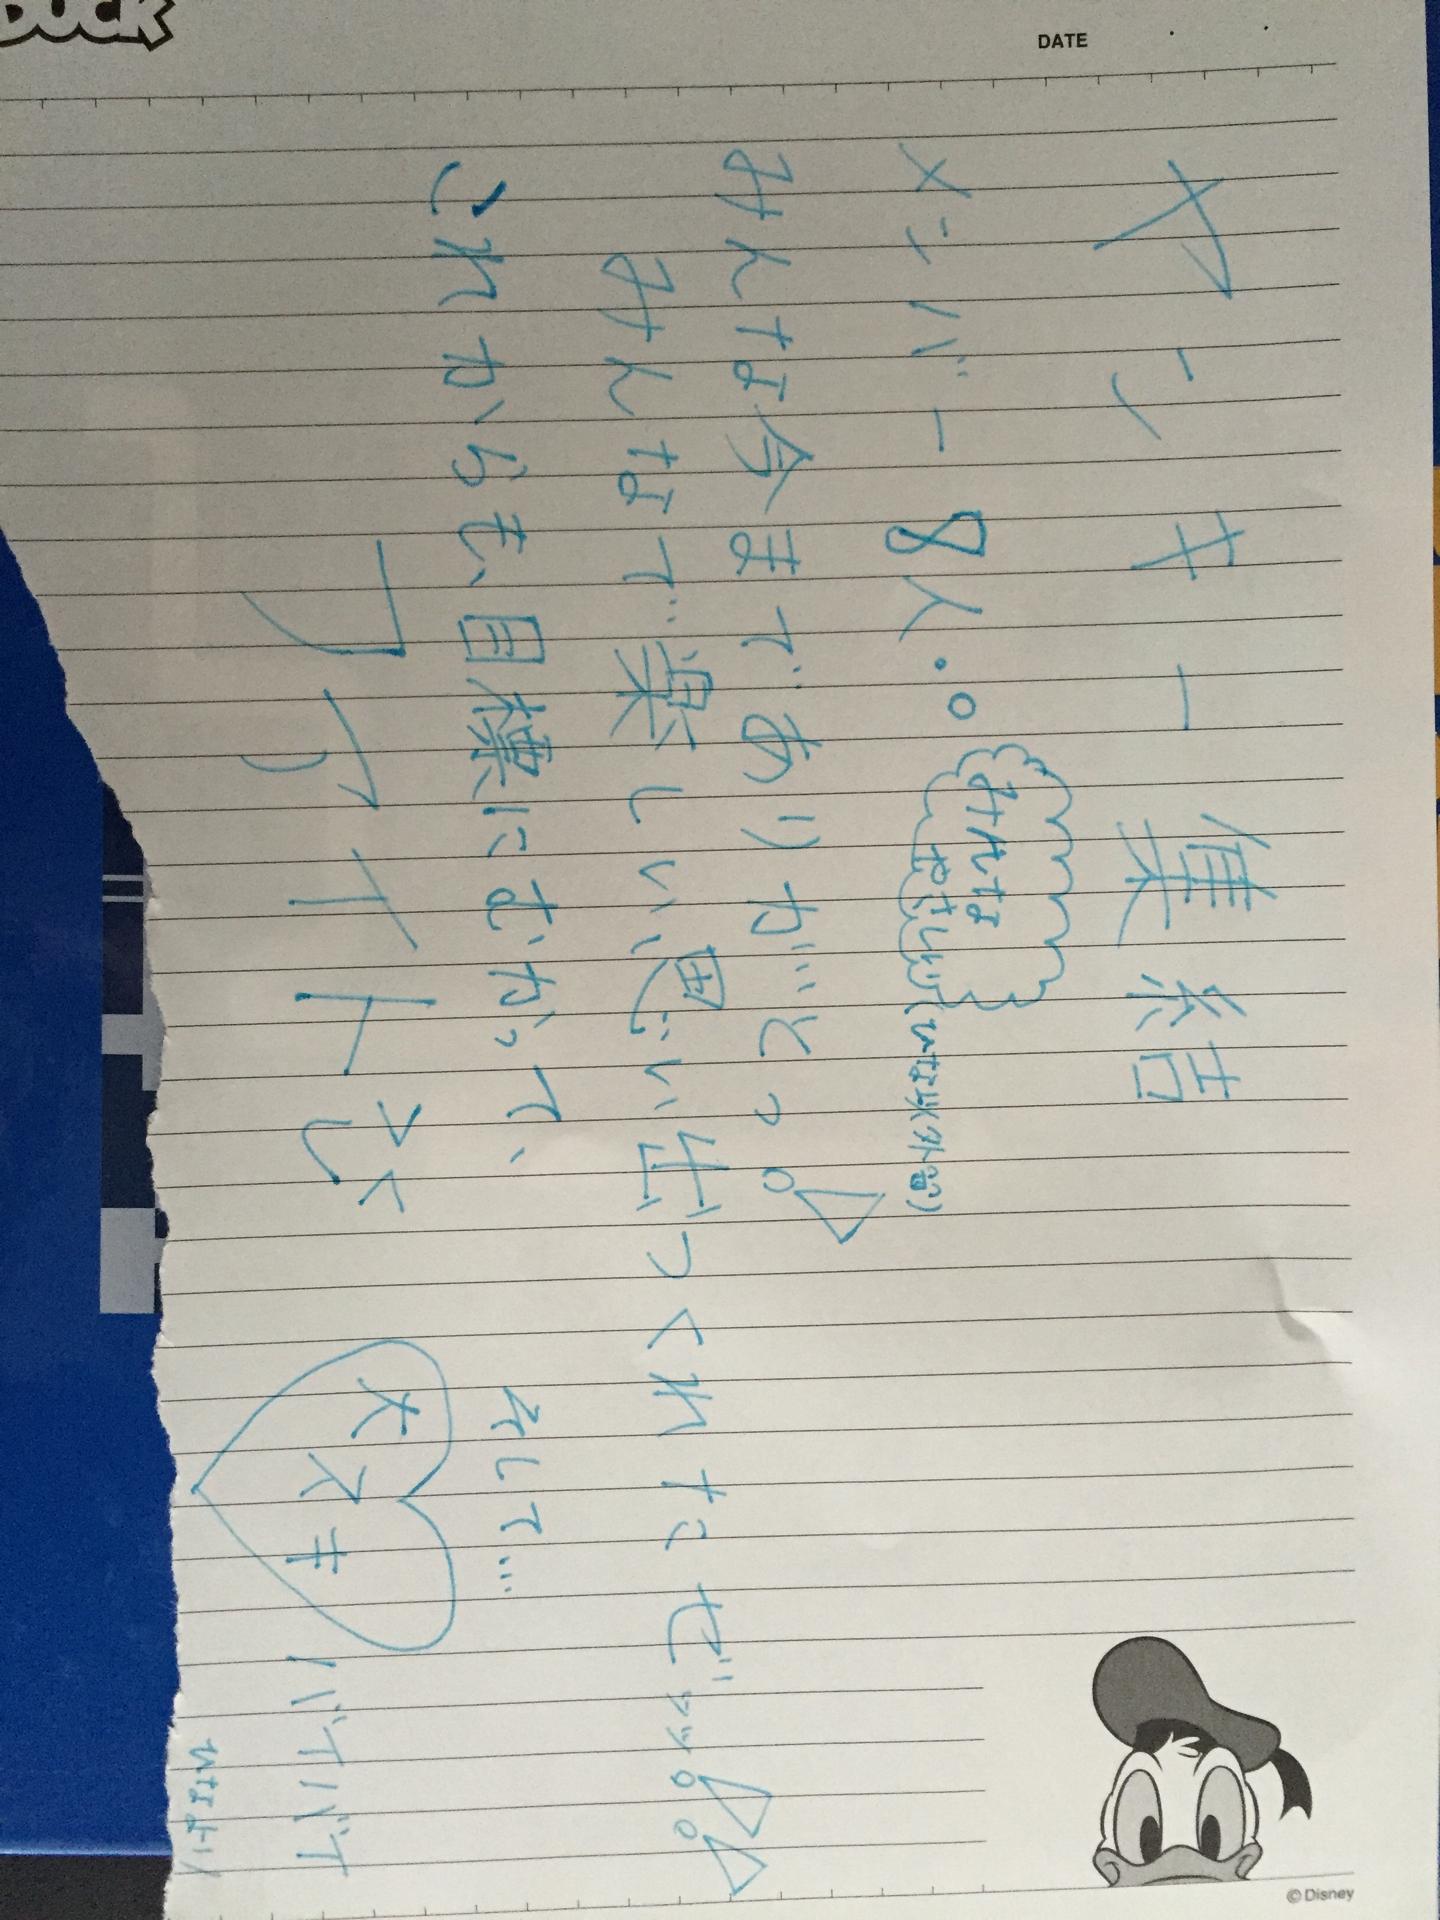 DUCK
DATE
ヤンキー集結
メンバー8人.。
みんな
やさしい
みんな今までありがとっ。
みんなで楽しい思い出つくれたぜッッ
これからも、目標にむかって、 そして…
ファイト 大スキ バイバイ
ひなより
© Disney